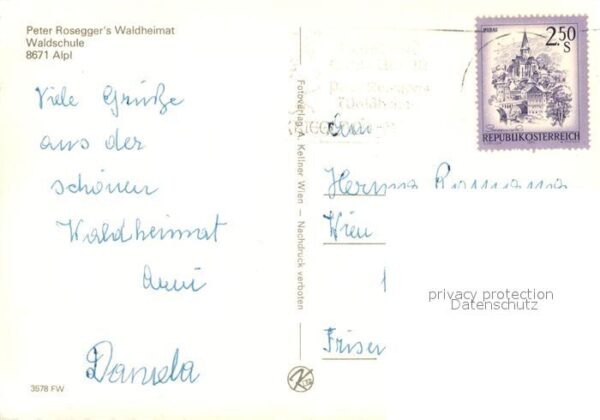 Peter Rosegger's Waldheimat
Waldschule
8671 Alpl
Viele Grüße
aus der
schönen
Waldheimat
Anni
Daniela
3578 FW
Fotoverlag A. Kellner Wien — Nachdruck verboten
2.50
S
REPUBLIK ÖSTERREICH
Peter Roseggers
Waldheimat
Wien
Friser
privacy protection
Datenschutz